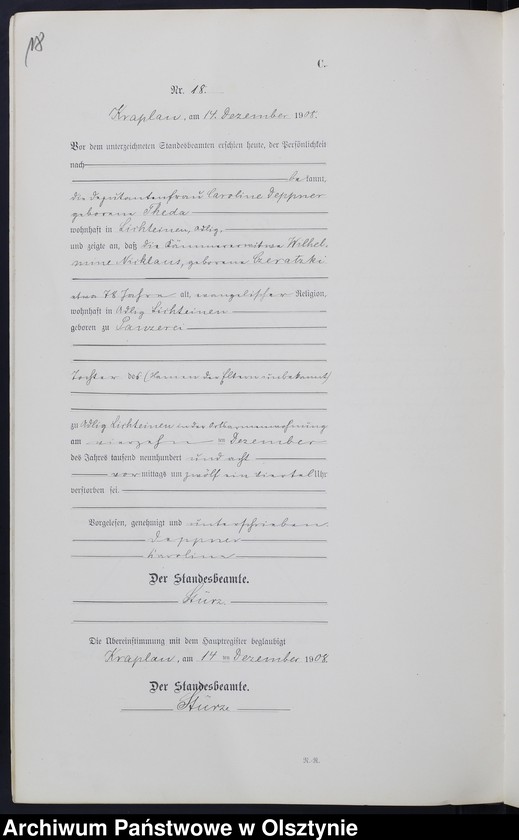 18
C.
Nr. 18.
Kraplau, am 14. Dezember 1908.
Vor dem unterzeichneten Standesbeamten erschien heute, der Persönlichkeit
nach
bekannt,
die Deputantenfrau Caroline Deppner
geborene Theda
wohnhaft in Lichteinen, Adlig,
und zeigte an, daß die Kämmererwitwe Wilhel,
mine Nicklaus, geborene Czeratzki
etwa 78 Jahre alt, evangelischer Religion,
wohnhaft in Adlig Lichteinen
geboren zu Panzerei
Tochter des (Namen der Eltern unbekannt)
zu Adlig Lichteinen in der Ortsarmenwohnung
am vierzehn ten Dezember
des Jahres tausend neunhundert und acht
vor mittags um zwölf ein viertel Uhr
verstorben sei.
Vorgelesen, genehmigt und unterschrieben
Deppner
Karoline
Der Standesbeamte.
Stürz.
Die Übereinstimmung mit dem Hauptregister beglaubigt
Kraplau, am 14 ten Dezember 1908.
Der Standesbeamte.
Stürz
Archiwum Państwowe w Olsztynie